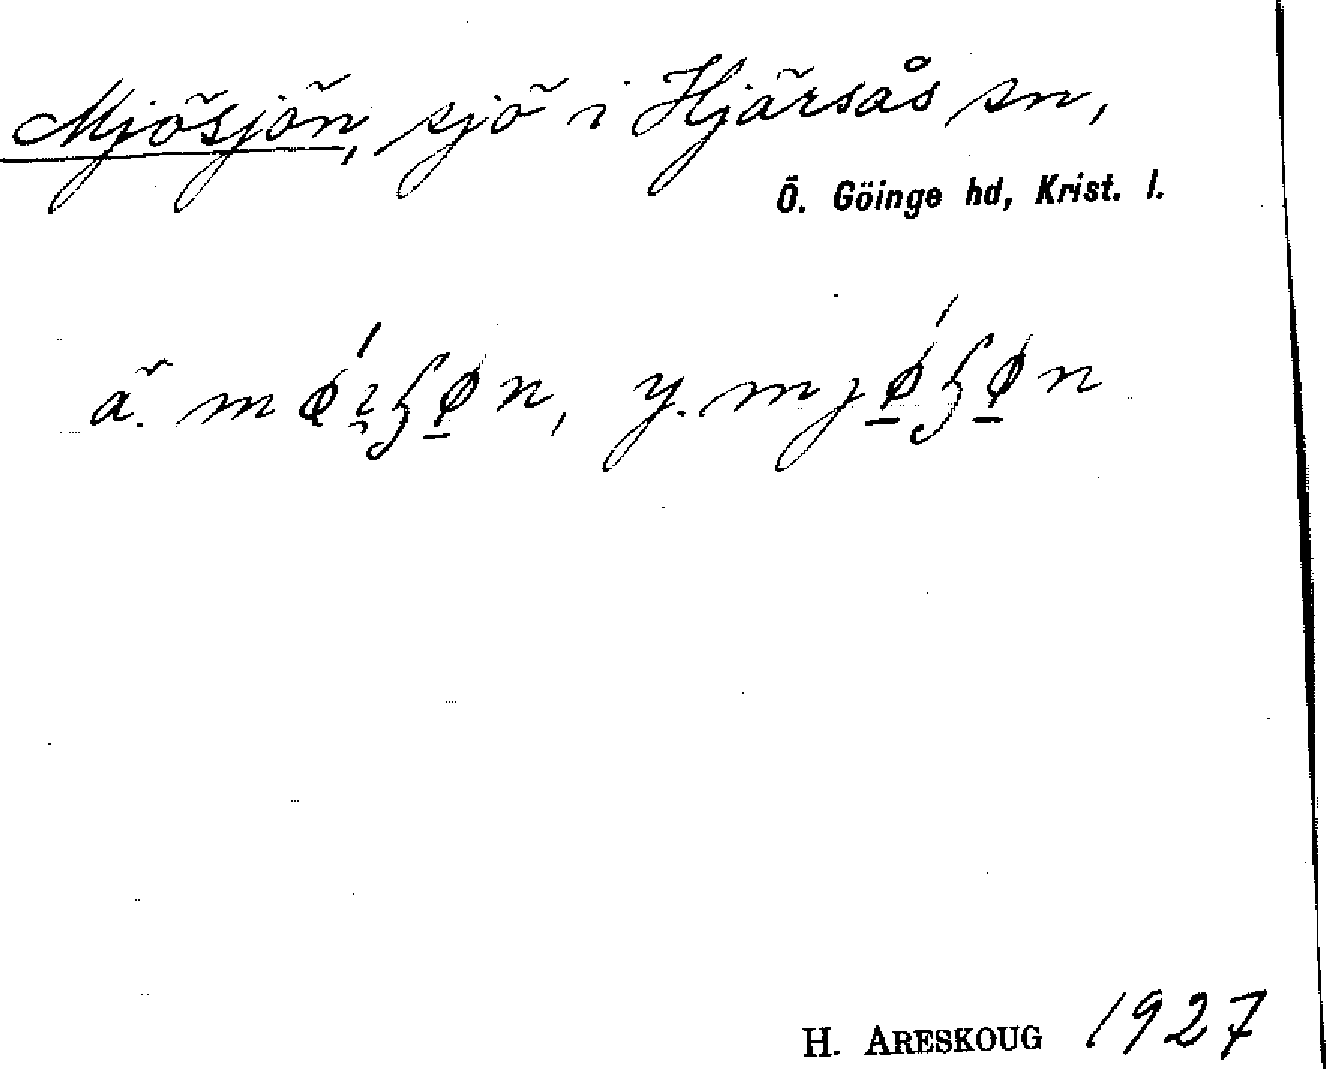 Mjösjön, sjö i Hjärsås sn,
Ö. Göinge hd, Krist. l.
ä. y.
H. ARESKOUG 1927